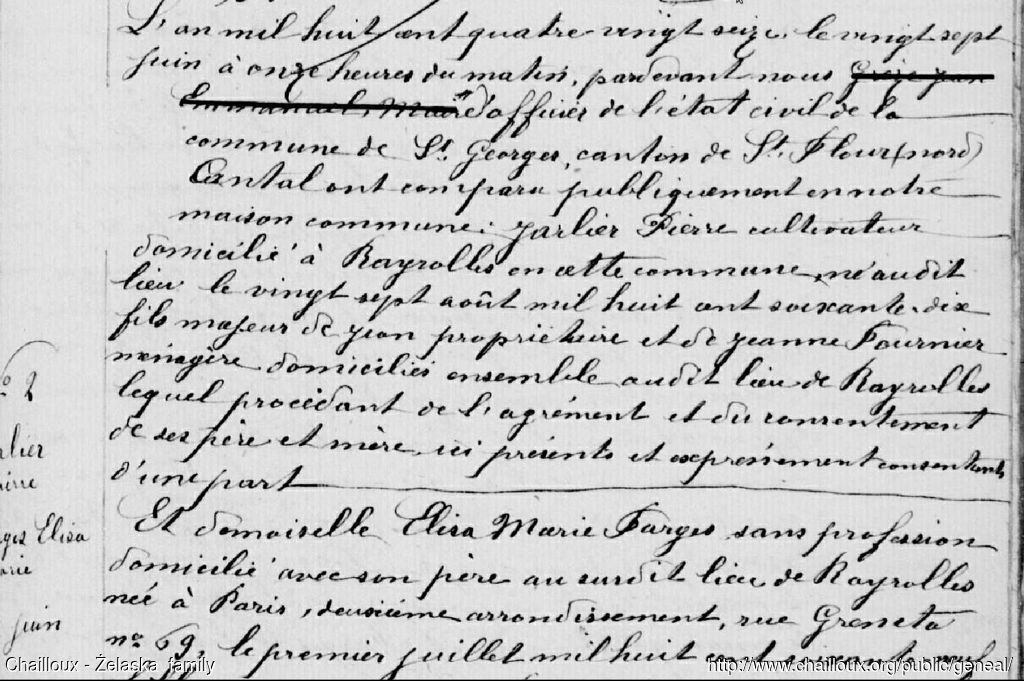 L'an mil huit cent quatre-vingt seize, le vingt sept
juin à onze heures du matin, pardevant nous
d'officier de l'état civil de la
commune de St Georges, canton de St Flour (nord)
Cantal ont comparu publiquement en notre
maison commune: Jarlier Pierre cultivateur
domicilié à Rayrolles en cette commune, né audit
lieu le vingt sept août mil huit cent soixante-dix
fils majeur de Jean propriétaire et de Jeanne Fournier
ménagère domiciliés ensemble audit lieu de Rayrolles
lequel procédant de l'agrément et du consentement
de ses père et mère ici présents et expressément consentants
d'une part
Et demoiselle Elisa Marie Farges sans profession
domicilié avec son père au susdit lieu de Rayrolles
née à Paris, deuxième arrondissement, rue Greneta
no 69, le premier juillet mil huit cent soixante neuf
No 2
rlier
ierre
rges Elisa
arie
juin
Chailloux - Żelaska family
http://www.chailloux.org/public/geneal/